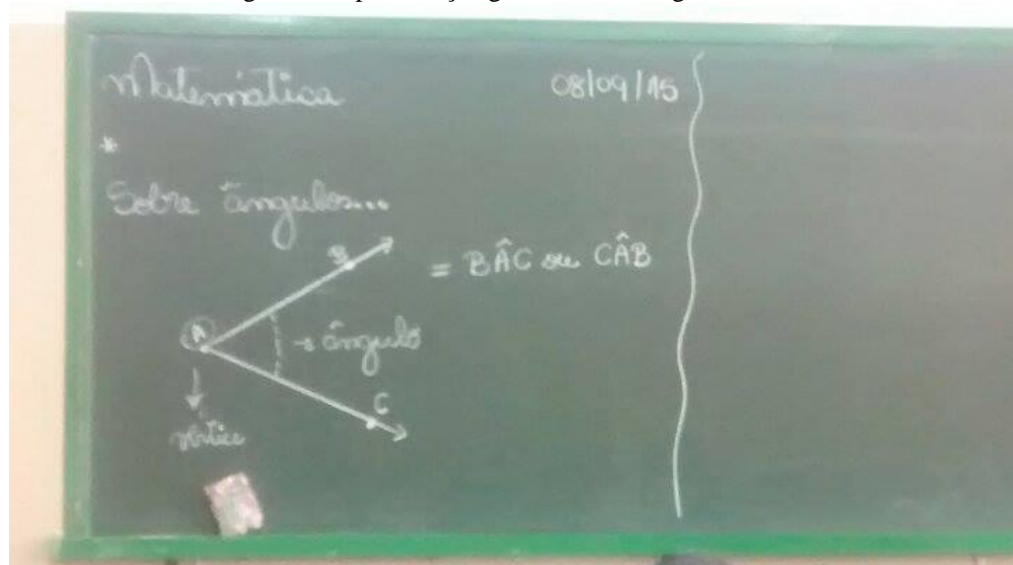 Matemática 08/09/15
*
Sobre ângulos...
B
= BÂC ou CÂB
A
→ ângulo
C
vértice